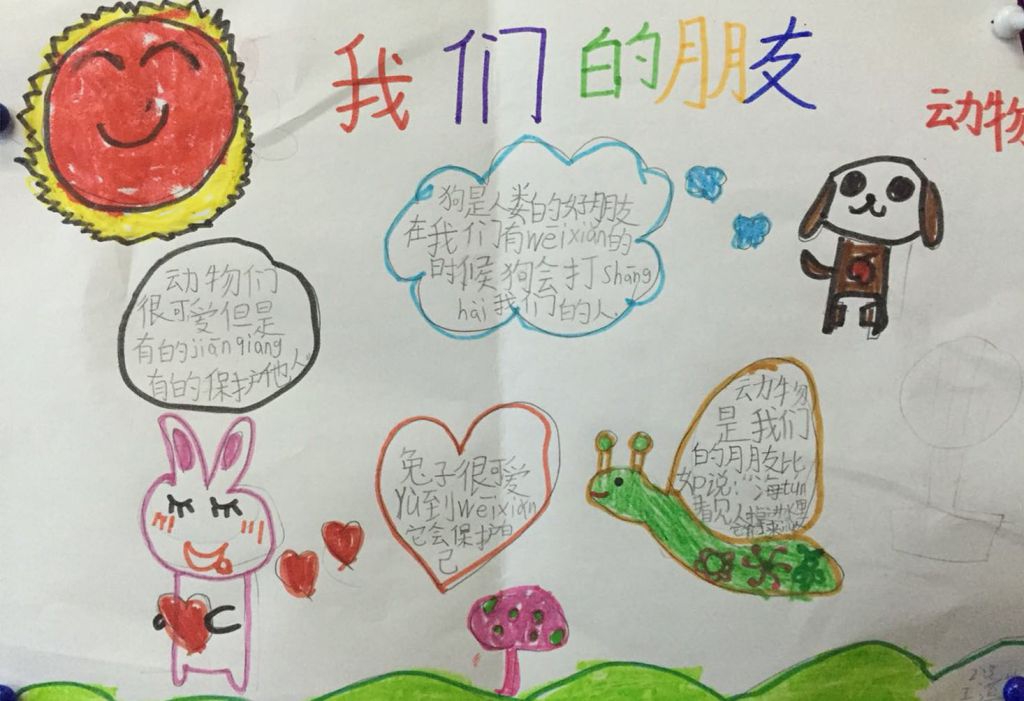 我们的朋友
动物
狗是人类的好朋友
在我们有wēixiǎn的
时候狗会打shāng
hài我们的人.
动物们
很可爱但是
有的jiānqiáng
有的保护他人.
动物
是我们
的朋友比
如说:"海tún
看见人掉进水里
兔子很可爱
Yù到wēixiǎn
它会保护自
己